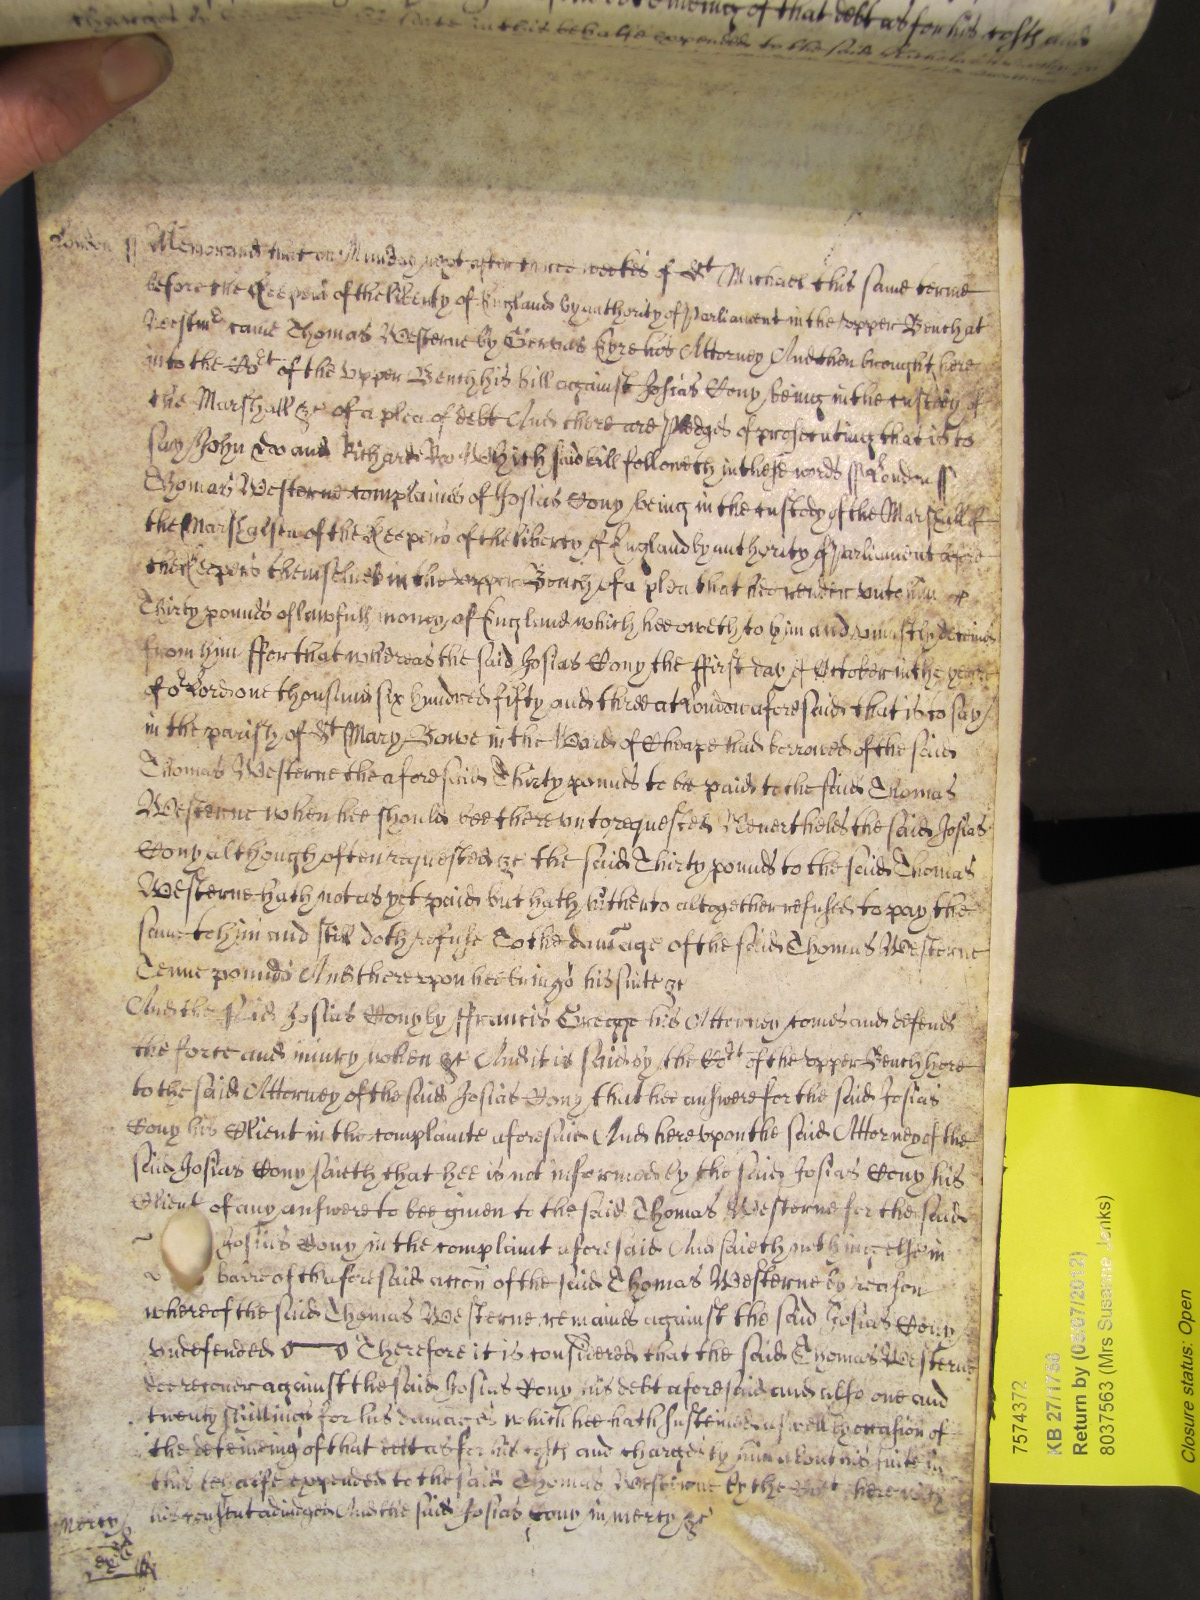 of that debt as for his costs and
charges in this behalfe expended to the said Nicholas
London ss Memorand that on Munday next after three weekes of St Michael this same terme
before the Keepers of the liberty of England by authority of Parliament in the upper Bench at
Westmr came Thomas Westerne by Gervas Eyre his Attorney And then brought here
into the Cort of the Upper Bench his bill against Josias Cony being in the custody of
the Marshall &c of a plea of debt And there are Pledges of prosecuting that is to
say John Doo and Richard Roo Which said bill followeth in these words ss London ss
Thomas Westerne complaines of Josias Cony being in the custody of the Marshall of
the Marshalsea of the Keepers of the liberty of England by authority of Parliament before
the Keepers themselves in the upper Bench of a plea that hee render unto him
Thirty pounds of lawfull money of England which hee oweth to him and uniustly deteines
from him ffor that whereas the said Josias Cony the ffirst day of October in the yeare
of or Lord one thousand six hundred fifty and three at London aforesaid that is to say
in the parish of St Mary Bowe in the Ward of Cheape had borrowed of the said
Thomas Westerne the aforesaid Thirty pounds to be paid to the said Thomas
Westerne when hee should bee thereunto requested Neverthelesse the said Josias
Cony although often requested &c the said Thirty pounds to the said Thomas
Westerne hath not as yet paid but hath hitherto altogether refused to pay the
same to him and still doth refuse To the damage of the said Thomas Westerne
Tenne pounds And thereupon hee brings his suite &c
And the said Josias Cony by ffrancis Gregge his Attorney comes and defends
the force and iniury when &c And it is said by the Cort of the upper Bench here
to the said Attorney of the said Josias Cony that hee answere for the said Josias
Cony his Client in the complainte aforesaid And hereupon the said Attorney of the
said Josias Cony saieth that hee is not informed by the said Josias Cony his
Client of any answere to bee given to the said Thomas Westerne for the said
Josias Cony in the complaint aforesaid And saieth nothing else in
barre of thaforesaid accon of the said Thomas Westerne by reason
whereof the said Thomas Westerne remaines against the said Josias Cony
undefended Therefore it is considered that the said Thomas Westerne
doe recover against the said Josias Cony his debt aforesaid and also one and
twenty shillings for his damages which hee hath susteined aswell by occasion of
the deteineing of that debt as for his costs and charges by him about his suite in
this behalfe expended to the said Thomas Westerne by the Cort here with
his consent adiudged And the said Josias Cony in mercy &c
Mercy
7574372
KB 27/1756
Return by (05/07/2012)
8037563 (Mrs Susanne Jenks)
Closure status: Open